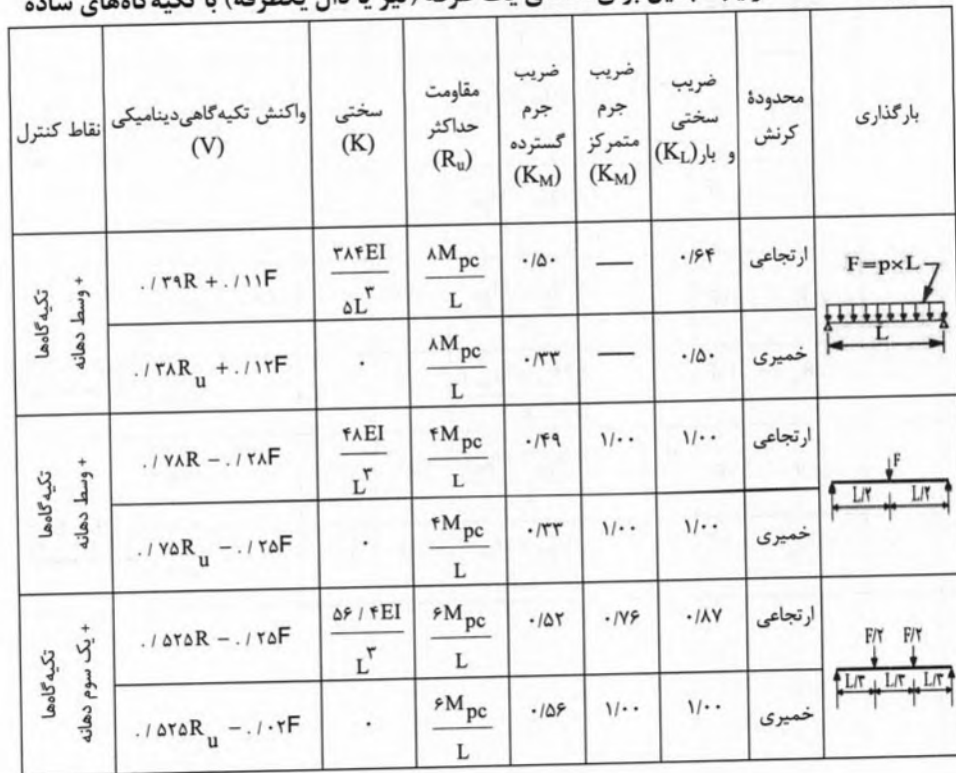 (تیر یا دال یکطرفه) با تکیه‌گاه‌های ساده
بارگذاری
محدودهٔ کرنش
ضریب سختی و بار (K_L)
ضریب جرم متمرکز (K_M)
ضریب جرم گسترده (K_M)
مقاومت حداکثر (R_u)
سختی (K)
واکنش تکیه‌گاهی دینامیکی (V)
نقاط کنترل
F=p×L
L
ارتجاعی
۰/۶۴
—
۰/۵۰
۸M_pc / L
۳۸۴EI / ۵L^۳
۰/۳۹R + ۰/۱۱F
تکیه گاهها + وسط دهانه
خمیری
۰/۵۰
—
۰/۳۳
۸M_pc / L
۰
۰/۳۸R_u + ۰/۱۲F
F
L/۲ L/۲
ارتجاعی
۱/۰۰
۱/۰۰
۰/۴۹
۴M_pc / L
۴۸EI / L^۳
۰/۷۸R − ۰/۲۸F
تکیه گاهها + وسط دهانه
خمیری
۱/۰۰
۱/۰۰
۰/۳۳
۴M_pc / L
۰
۰/۷۵R_u − ۰/۲۵F
F/۲ F/۲
L/۳ L/۳ L/۳
ارتجاعی
۰/۸۷
۰/۷۶
۰/۵۲
۶M_pc / L
۵۶/۴EI / L^۳
۰/۵۲۵R − ۰/۲۵F
تکیه گاهها + یک سوم دهانه
خمیری
۱/۰۰
۱/۰۰
۰/۵۶
۶M_pc / L
۰
۰/۵۲۵R_u − ۰/۰۲F